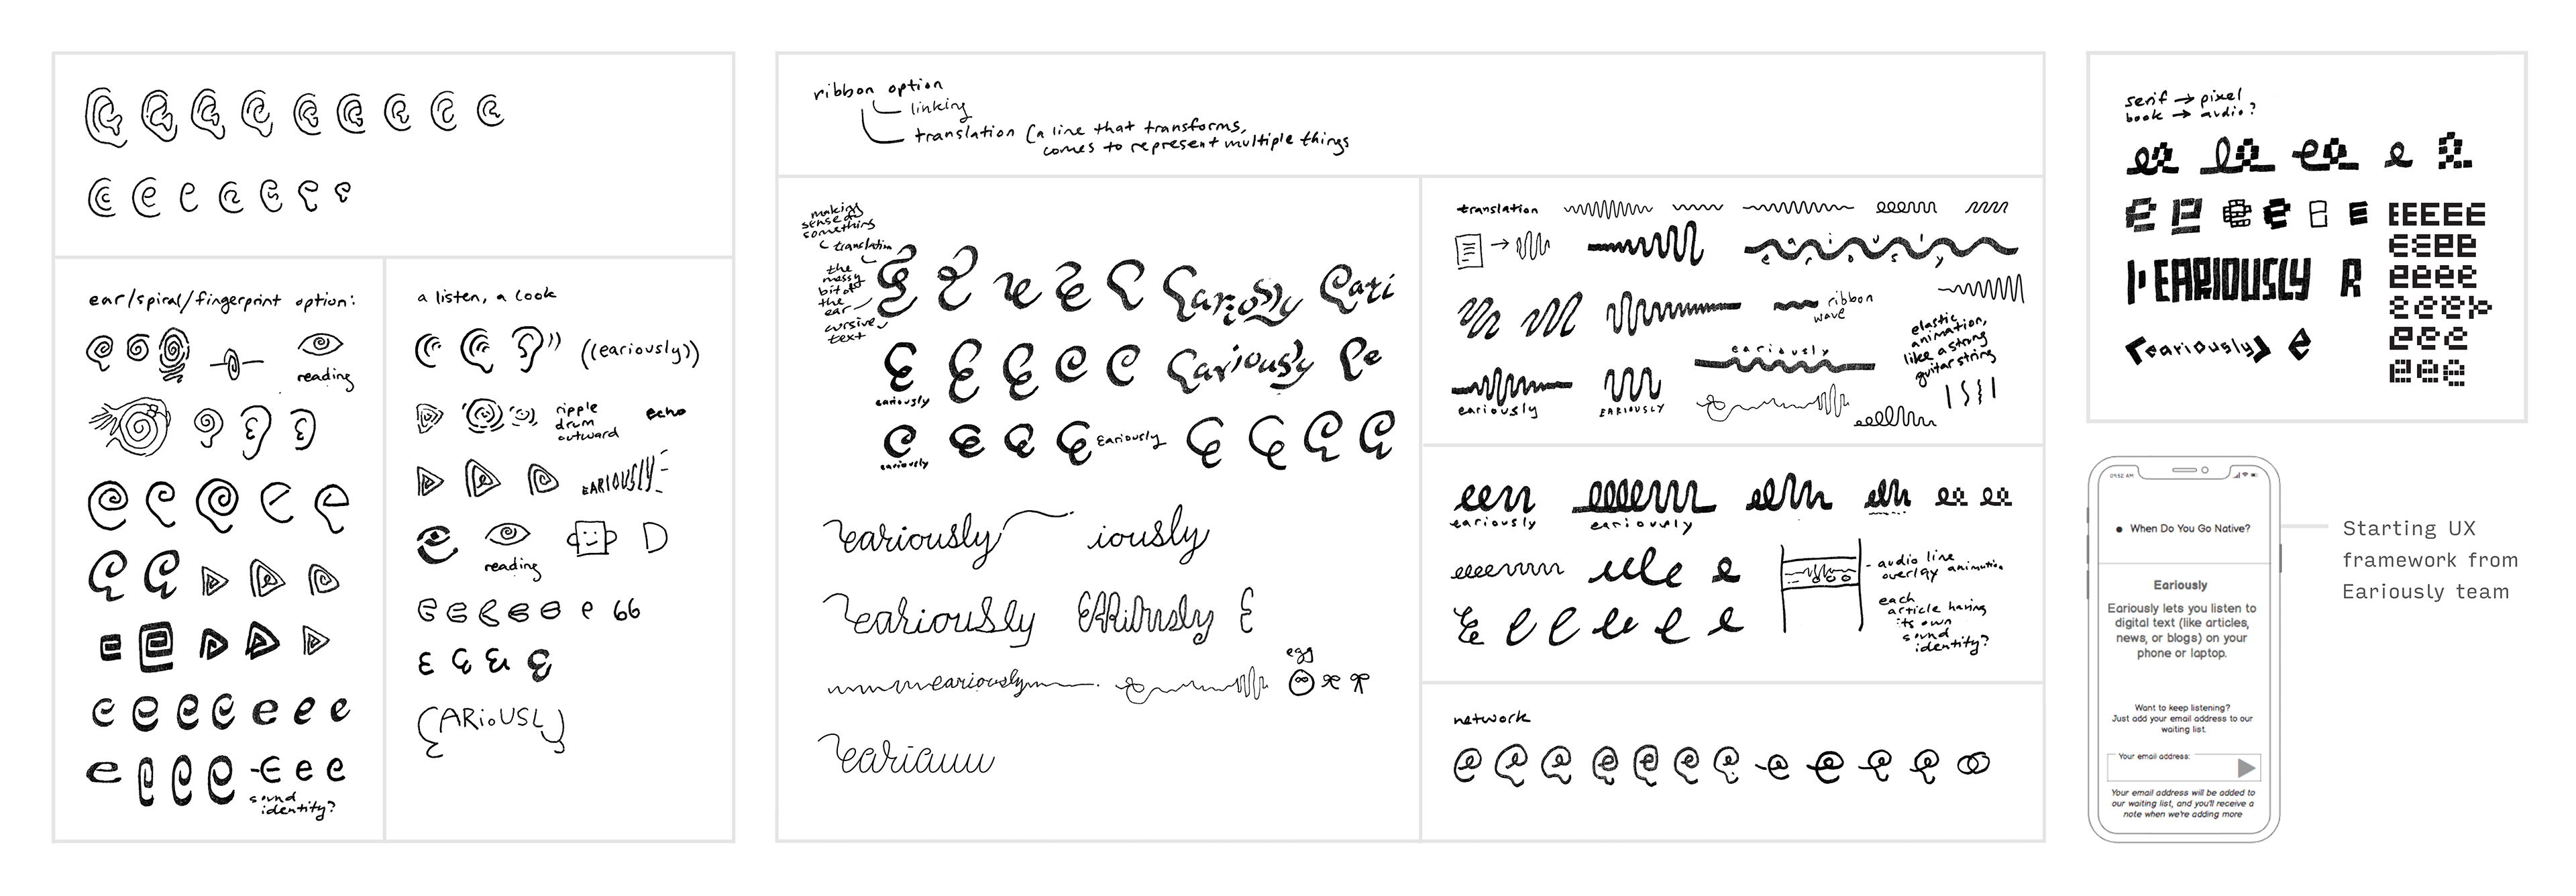 ear/spiral/fingerprint option:
reading
sound
identity?
a listen, a look
((eariously))
ripple
drum
outward
echo
EARIOUSLY
reading
EARIOUSLY
ribbon option
linking
translation (a line that transforms,
comes to represent multiple things
making
sense of
something
translation
the
messy
bit of
the
ear
cursive
text
Eariously
Eari
eariously
Eariously
eariously
Eariously
eariously
iously
eariously
EARiously
eariously
egg
translation
eariously
ribbon
wave
elastic
animation,
like a string
guitar string
eariously
eariously
EARIOUSLY
eariously
eariously
audio line
overlay animation
each
article having
its own
sound
identity?
network
serif → pixel
book → audio?
EARIOUSLY R
<eariously> e
09:52 AM
When Do You Go Native?
Eariously
Eariously lets you listen to
digital text (like articles,
news, or blogs) on your
phone or laptop.
Want to keep listening?
Just add your email address to our
waiting list.
Your email address:
Your email address will be added to
our waiting list, and you'll receive a
note when we're adding more
Starting UX
framework from
Eariously team